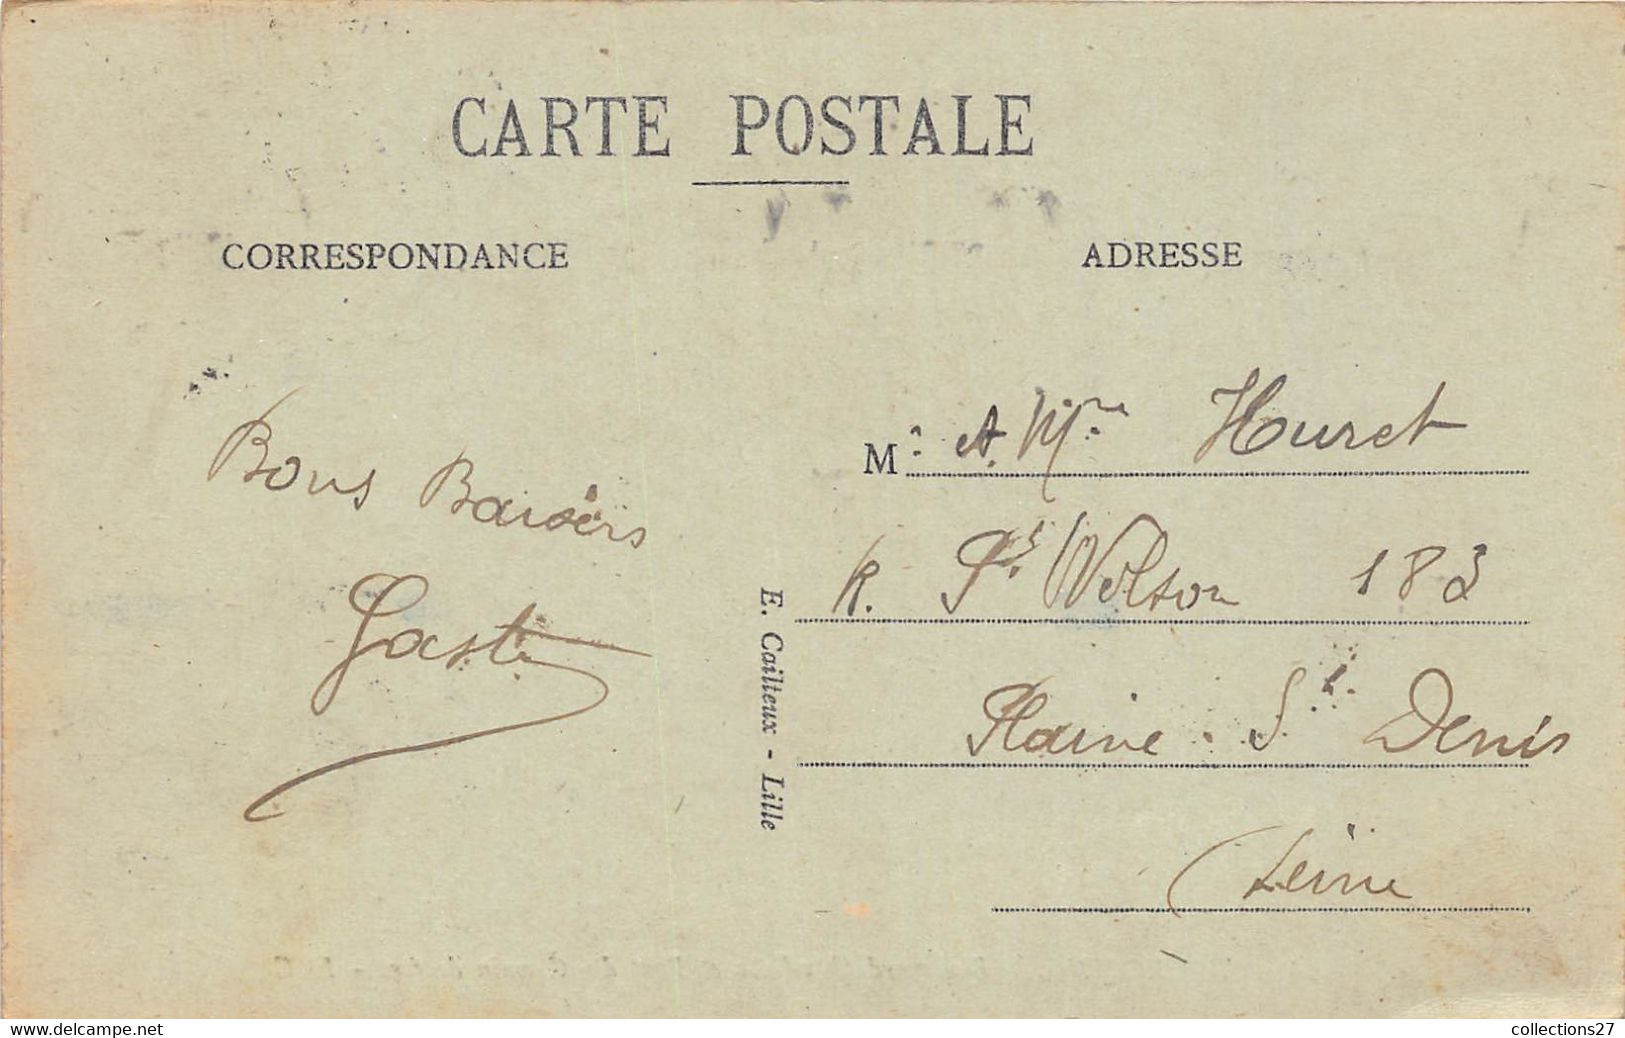 CARTE POSTALE
CORRESPONDANCE
ADRESSE
Bons Baisers
Gast
M. et Mme Huret
R. Pt Wilson 183
Plaine St Denis
Seine
E. Cailteux - Lille
www.delcampe.net
collections27